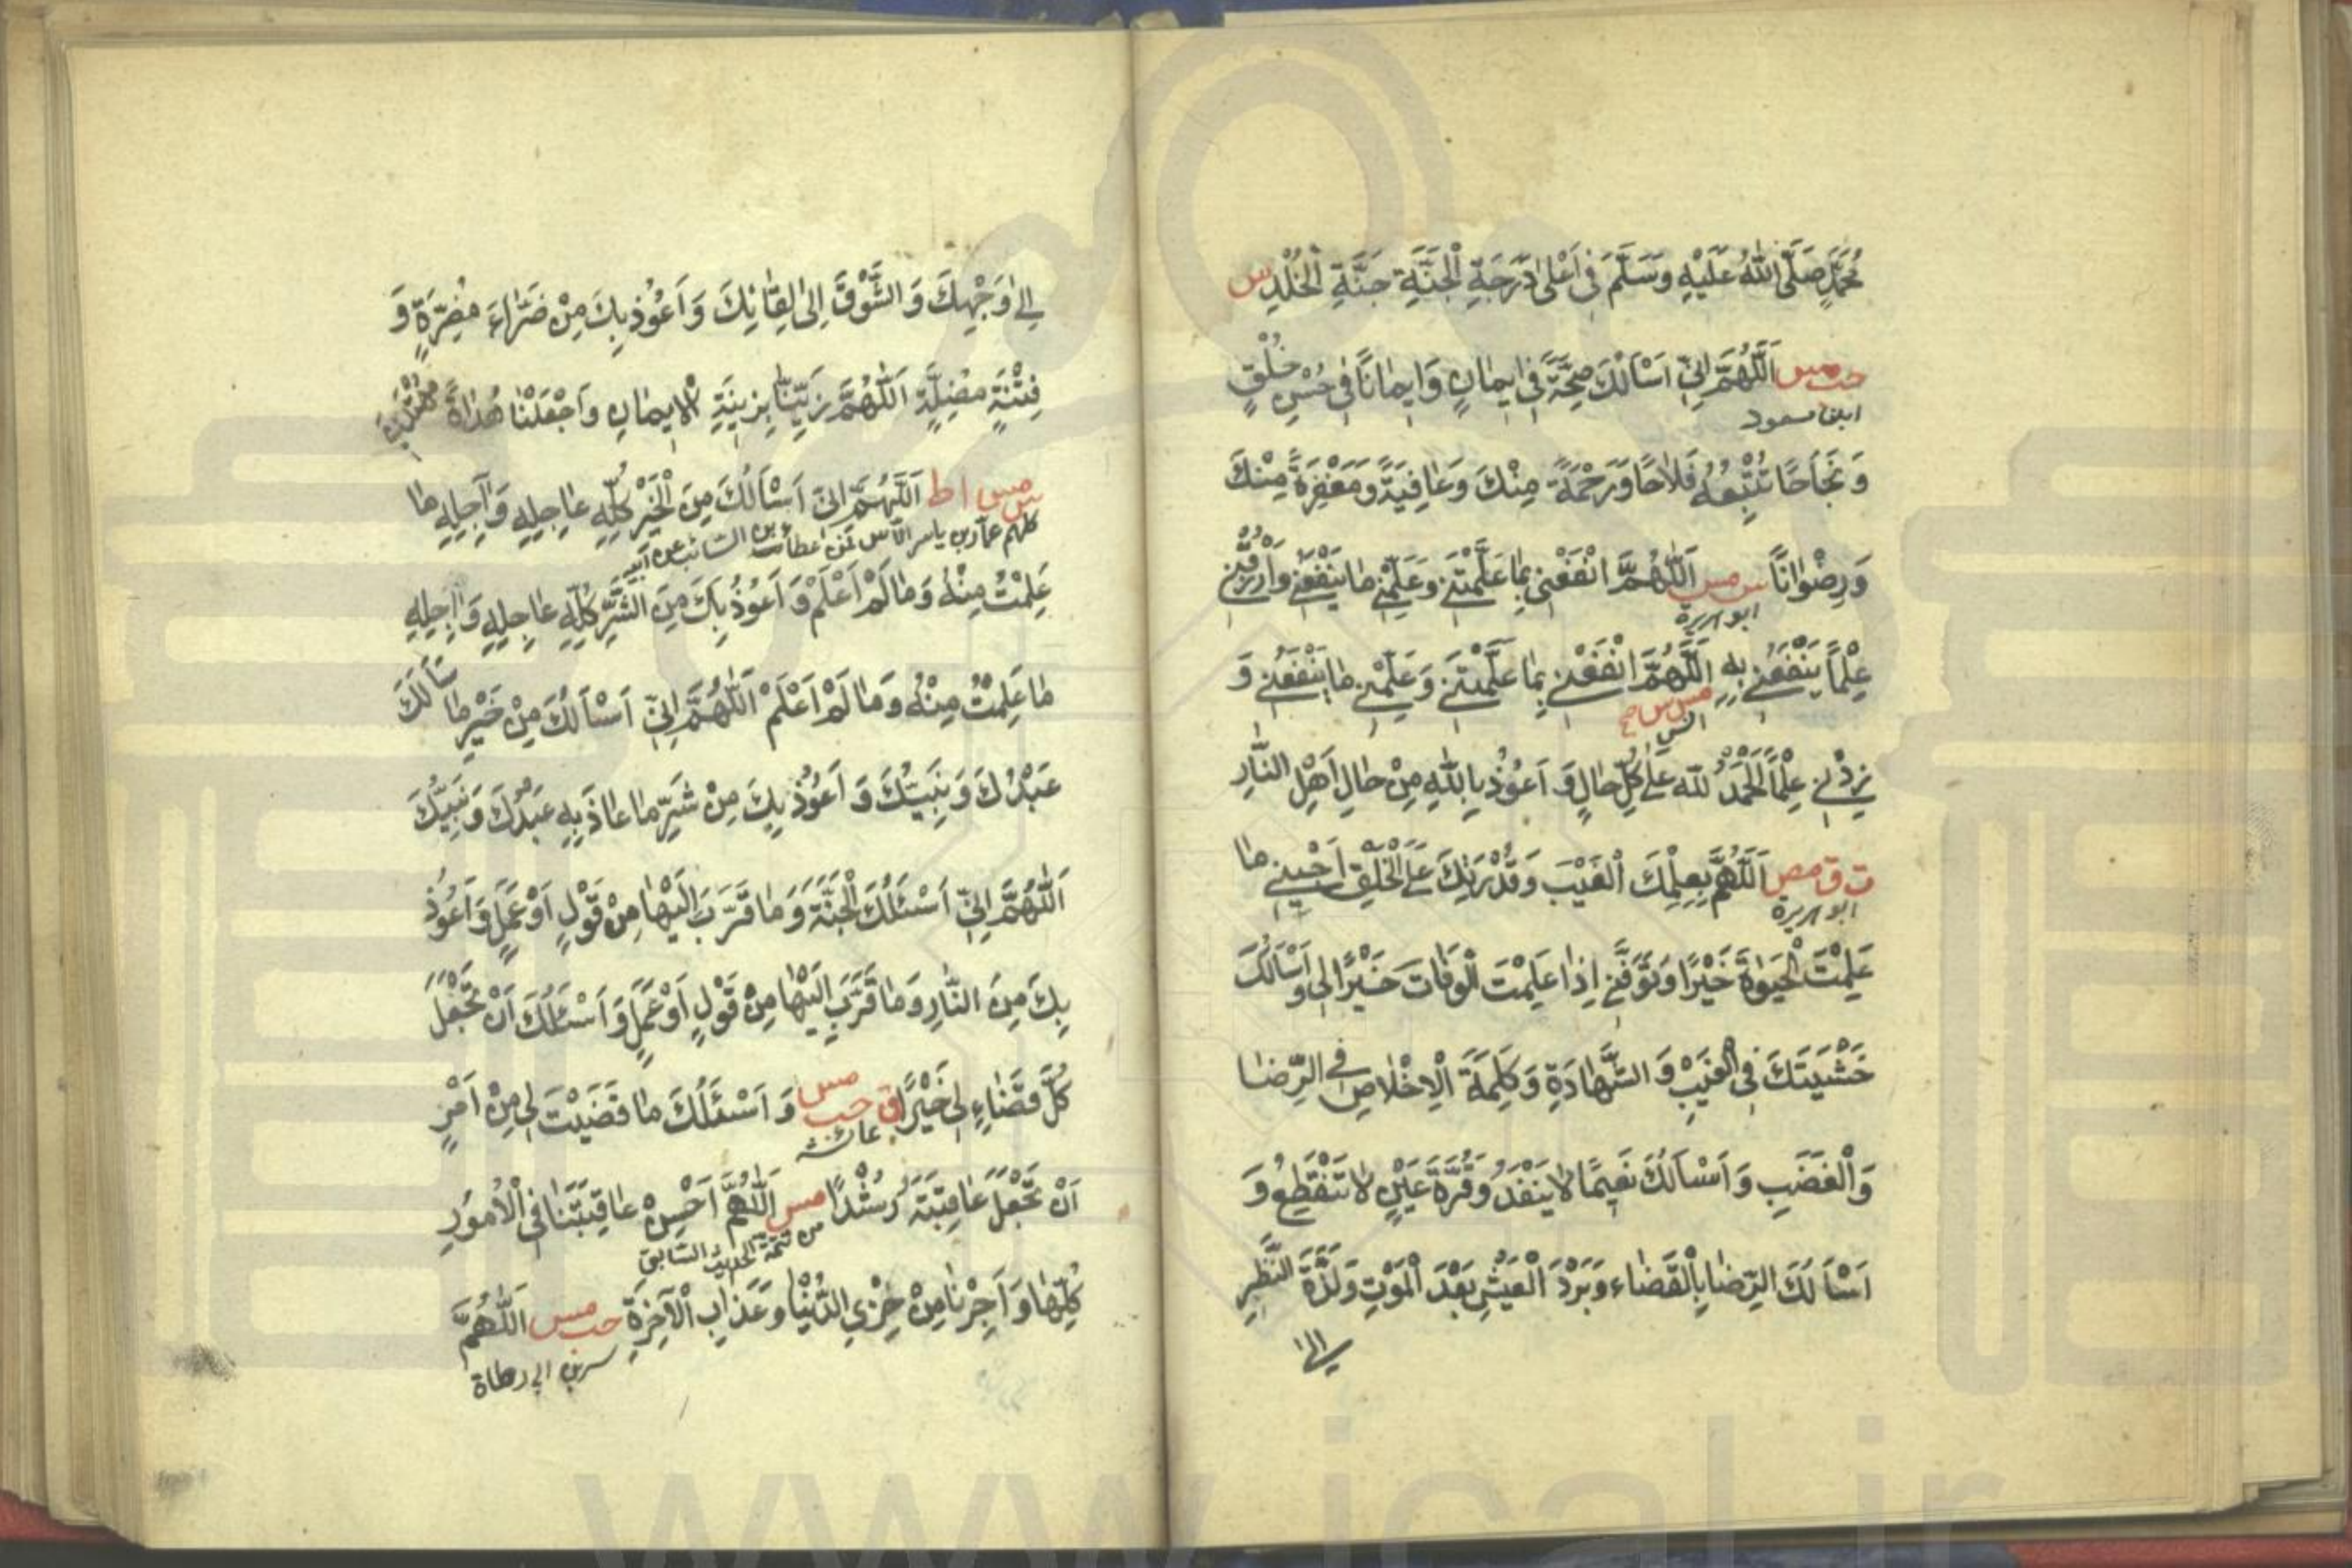 مُحَمَّدٍ صَلَّى اللهُ عَلَيْهِ وَسَلَّمَ فِي اَعْلٰى دَرَجَةِ الْجَنَّةِ جَنَّةِ الْخُلْدِ س
حب مس اَللّٰهُمَّ اِنِّي اَسْأَلُكَ صِحَّةً فِي اِيمَانٍ وَاِيمَانًا فِي حُسْنِ خُلْقٍ
ابن مسعود
وَنَجَاحًا تُتْبِعُهُ فَلَاحًا وَرَحْمَةً مِنْكَ وَعَافِيَةً وَمَغْفِرَةً مِنْكَ
وَرِضْوَانًا س مس اَللّٰهُمَّ انْفَعْنِي بِمَا عَلَّمْتَنِي وَعَلِّمْنِي مَا يَنْفَعُنِي وَارْزُقْنِي
ابو هريرة
عِلْمًا يَنْفَعُنِي بِهِ اَللّٰهُمَّ انْفَعْنِي بِمَا عَلَّمْتَنِي وَعَلِّمْنِي مَا يَنْفَعُنِي وَ
مس س
انس
زِدْنِي عِلْمًا اَلْحَمْدُ لِلّٰه عَلٰى كُلِّ حَالٍ وَ اَعُوْذُ بِاللهِ مِنْ حَالِ اَهْلِ النَّارِ
ت ق مص اَللّٰهُمَّ بِعِلْمِكَ الْغَيْبَ وَقُدْرَتِكَ عَلَى الْخَلْقِ اَحْيِنِي مَا
ابو هريرة
عَلِمْتَ الْحَيٰوةَ خَيْرًا وَتَوَفَّنِي اِذَا عَلِمْتَ الْوَفَاتَ خَيْرًا لِي وَاَسْأَلُكَ
خَشْيَتَكَ فِي الْغَيْبِ وَ الشَّهَادَةِ وَكَلِمَةَ الْاِخْلَاصِ فِي الرِّضَا
وَالْغَضَبِ وَ اَسْأَلُكَ نَعِيمًا لَا يَنْفَدُ وَقُرَّةَ عَيْنٍ لَا تَنْقَطِعُ وَ
اَسْأَلُكَ الرِّضَا بِالْقَضَاءِ وَبَرْدَ الْعَيْشِ بَعْدَ الْمَوْتِ وَلَذَّةَ النَّظَرِ
الى
اِلٰى وَجْهِكَ وَ الشَّوْقَ اِلٰى لِقَائِكَ وَ اَعُوْذُ بِكَ مِنْ ضَرَّاءَ مُضِرَّةٍ وَ
فِتْنَةٍ مُضِلَّةٍ اَللّٰهُمَّ زَيِّنَّا بِزِينَةِ الْاِيمَانِ وَاجْعَلْنَا هُدَاةً مُهْتَدِينَ
س مس ا ط اَللّٰهُمَّ اِنِّي اَسْأَلُكَ مِنَ الْخَيْرِ كُلِّهِ عَاجِلِهِ وَاٰجِلِهِ مَا
كلهم عمار بن ياسر عطاء بن السائب عن ابيه
عَلِمْتُ مِنْهُ وَمَا لَمْ اَعْلَمْ وَ اَعُوْذُ بِكَ مِنَ الشَّرِّ كُلِّهِ عَاجِلِهِ وَاٰجِلِهِ
مَا عَلِمْتُ مِنْهُ وَمَا لَمْ اَعْلَمْ اَللّٰهُمَّ اِنِّي اَسْأَلُكَ مِنْ خَيْرِ مَا سَأَلَكَ
عَبْدُكَ وَ نَبِيُّكَ وَ اَعُوْذُ بِكَ مِنْ شَرِّ مَا عَاذَ بِهِ عَبْدُكَ وَ نَبِيُّكَ
اَللّٰهُمَّ اِنِّي اَسْئَلُكَ الْجَنَّةَ وَ مَا قَرَّبَ اِلَيْهَا مِنْ قَوْلٍ اَوْ عَمَلٍ وَ اَعُوْذُ
بِكَ مِنَ النَّارِ وَ مَا قَرَّبَ اِلَيْهَا مِنْ قَوْلٍ اَوْ عَمَلٍ وَ اَسْئَلُكَ اَنْ تَجْعَلَ
كُلَّ قَضَاءٍ لِي خَيْرًا ق حب مس وَ اَسْئَلُكَ مَا قَضَيْتَ لِي مِنْ اَمْرٍ
عائشه
اَنْ تَجْعَلَ عَاقِبَتَهُ رُشْدًا مس اَللّٰهُمَّ اَحْسِنْ عَاقِبَتَنَا فِي الْاُمُورِ
من تتمة الحديث السابق
كُلِّهَا وَ اَجِرْنَا مِنْ خِزْيِ الدُّنْيَا وَ عَذَابِ الْاٰخِرَةِ حب مس اَللّٰهُمَّ
ارطاة
www.ical.ir